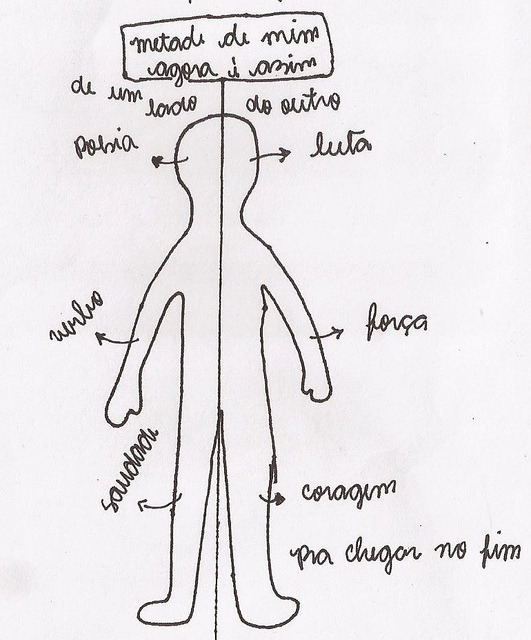 metade de mim
agora é assim
de um lado
do outro
poesia
luta
verbo
força
saudade
coragem
pra chegar no fim